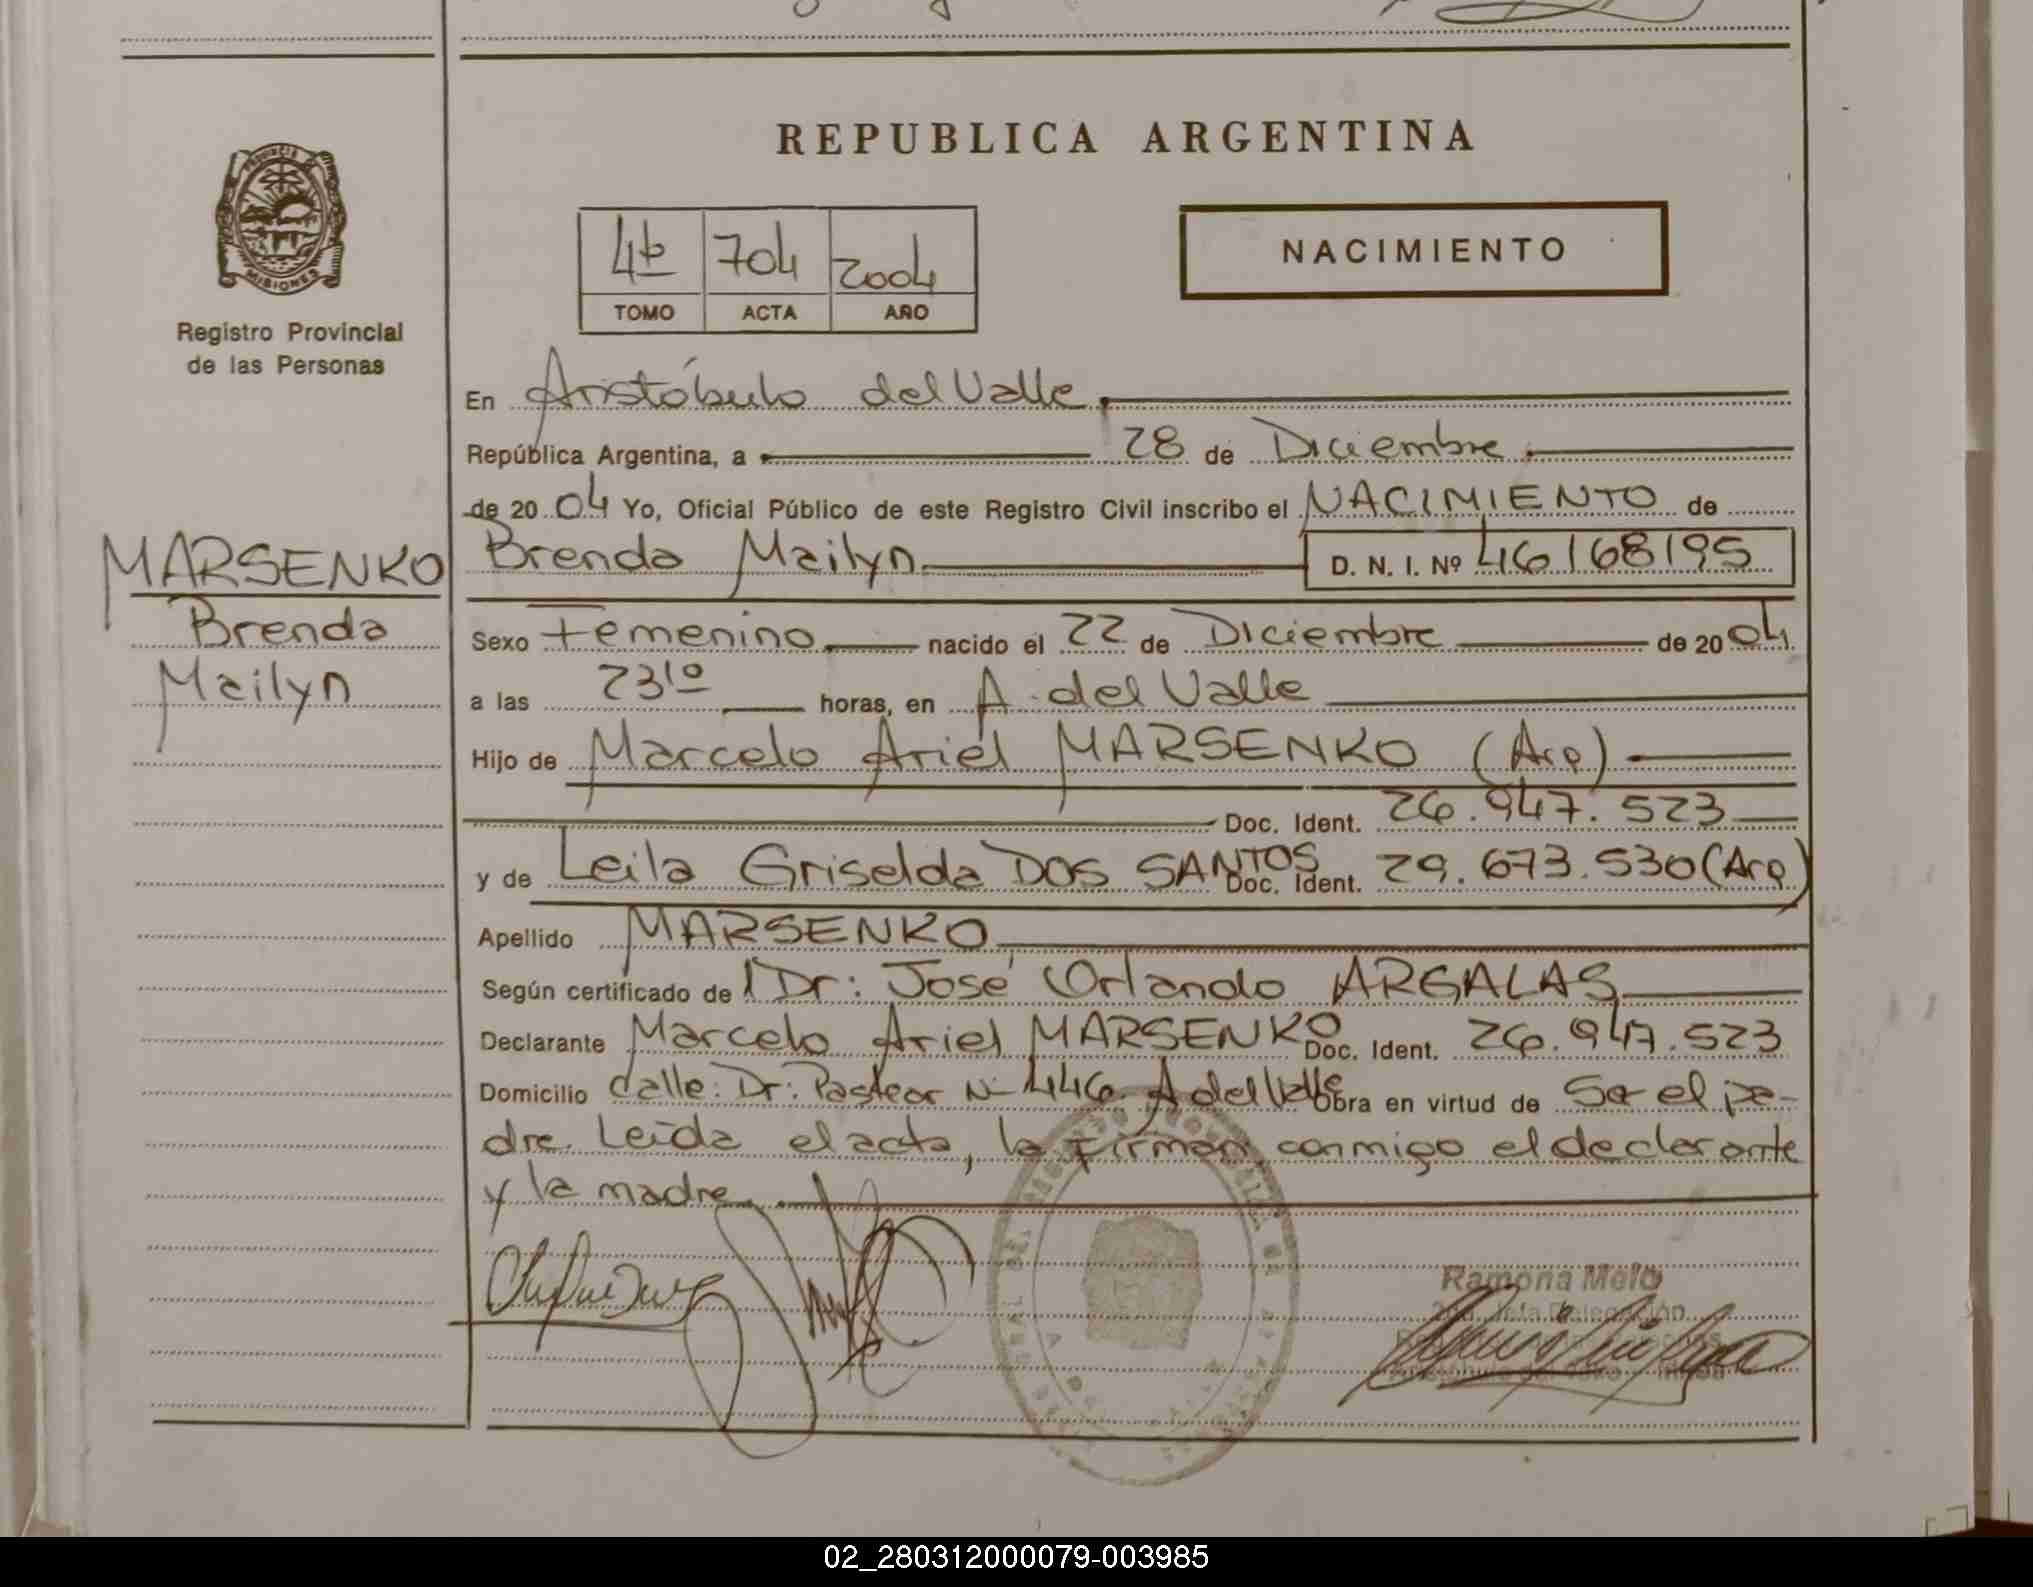 REPUBLICA ARGENTINA
PROVINCIA DE MISIONES
Registro Provincial
de las Personas
4to 704 2004
TOMO ACTA AÑO
NACIMIENTO
En Aristóbulo del Valle
República Argentina, a 28 de Diciembre
de 2004 Yo, Oficial Público de este Registro Civil inscribo el NACIMIENTO de
MARSENKO
Brenda
Mailyn
Brenda Mailyn D. N. I. Nº 46168195
Sexo Femenino nacido el 22 de Diciembre de 2004
a las 23¹⁰ horas, en A. del Valle
Hijo de Marcelo Ariel MARSENKO (Arg)
Doc. Ident. 26.947.523
y de Leila Griselda DOS SANTOS Doc. Ident. 29.673.530 (Arg)
Apellido MARSENKO
Según certificado de l Dr: José Orlando ARGALAS
Declarante Marcelo Ariel MARSENKO Doc. Ident. 26.947.523
Domicilio calle: Dr: Pasteur Nº 446 A del Valle Obra en virtud de Ser el pa-
dre. Leída el acta, la firman conmigo el declarante
y la madre.
Ramona Melo
Jefa Delegación
02_280312000079-003985